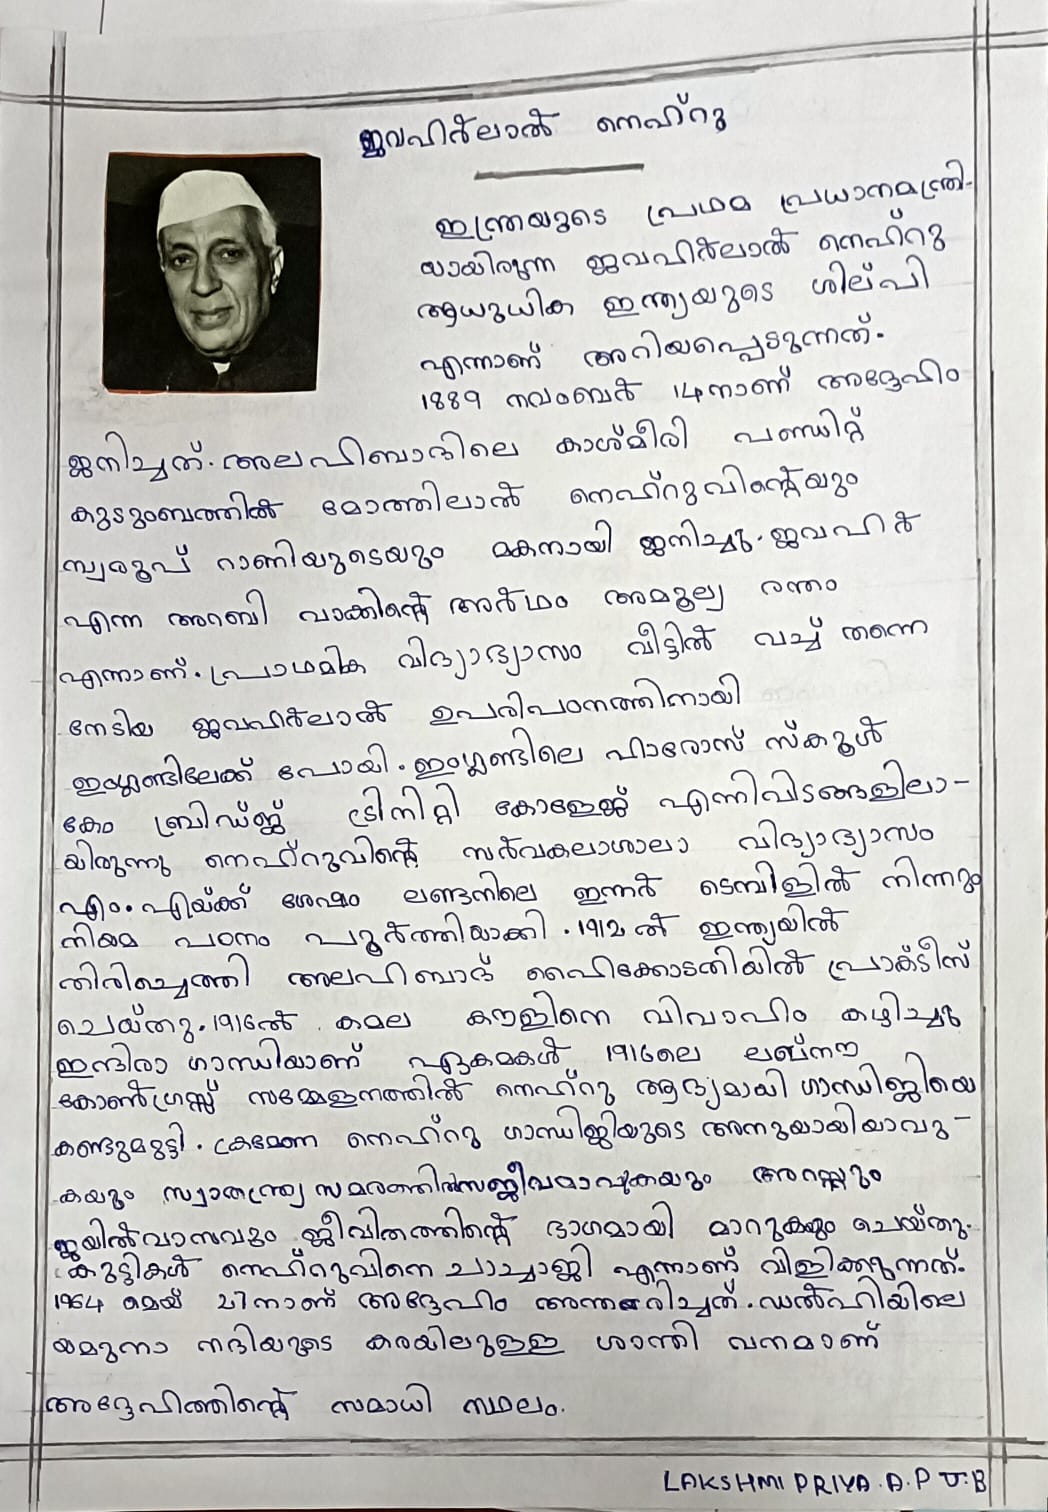 ജവഹർലാൽ നെഹ്റു
ഇന്ത്രയുടെ പ്രഥമ പ്രധാനമന്ത്രി-
യായിരുന്ന ജവഹർലാൽ നെഹ്റു
ആധുധിക ഇന്ത്യയുടെ ശില്പി
എന്നാണ് അറിയപ്പെടുന്നത്.
1889 നവംബർ 14നാണ് അദ്ദേഹം
ജനിച്ചത്. അലഹബാദിലെ കാശ്മീരി പണ്ഡിറ്റ്
കുടുംബത്തിൽ മോത്തിലാൽ നെഹ്റുവിന്റെയും
സ്വരൂപ് റാണിയുടെയും മകനായി ജനിച്ചു. ജവഹർ
എന്ന അറബി വാക്കിന്റെ അർഥം അമൂല്യ രത്നം
എന്നാണ്. പ്രാഥമിക വിദ്യാഭ്യാസം വീട്ടിൽ വച്ച് തന്നെ
നേടിയ ജവഹർലാൽ ഉപരിപഠനത്തിനായി
ഇംഗ്ലണ്ടിലേക്ക് പോയി. ഇംഗ്ലണ്ടിലെ ഹാരോസ് സ്കൂൾ
കേം ബ്രിഡ്ജ് ട്രിനിറ്റി കോളേജ് എന്നിവിടങ്ങളിലാ-
യിരുന്നു നെഹ്റുവിന്റെ സർവകലാശാലാ വിദ്യാഭ്യാസം
എം. എയ്ക്ക് ശേഷം ലണ്ടനിലെ ഇന്നർ ടെമ്പിളിൽ നിന്നും
നിയമ പഠനം പൂർത്തിയാക്കി. 1912 ൽ ഇന്ത്യയിൽ
തിരിച്ചെത്തി അലഹബാദ് ഹൈക്കോടതിയിൽ പ്രാക്ടീസ്
ചെയ്തു. 1916ൽ കമല കൗളിനെ വിവാഹം കഴിച്ചു
ഇന്ദിരാ ഗാന്ധിയാണ് ഏകമകൾ 1916ലെ ലഖ്നൗ
കോൺഗ്രസ്സ് സമ്മേളനത്തിൽ നെഹ്റു ആദ്യമായി ഗാന്ധിജിയെ
കണ്ടുമുട്ടി. ക്രമേണ നെഹ്റു ഗാന്ധിജിയുടെ അനുയായിയാവു-
കയും സ്വാതന്ത്ര്യ സമരത്തിൽ സജീവമാവുകയും അറസ്റ്റും
ജയിൽവാസവും ജീവിതത്തിന്റെ ഭാഗമായി മാറുകയും ചെയ്തു.
കുട്ടികൾ നെഹ്റുവിനെ ചാച്ചാജി എന്നാണ് വിളിക്കുന്നത്.
1964 മെയ് 27നാണ് അദ്ദേഹം അന്തരിച്ചത്. ഡൽഹിയിലെ
യമുനാ നദിയുടെ കരയിലുള്ള ശാന്തി വനമാണ്
അദ്ദേഹിത്തിന്റെ സമാധി സ്ഥലം.
LAKSHMI PRIYA. A. P V. B